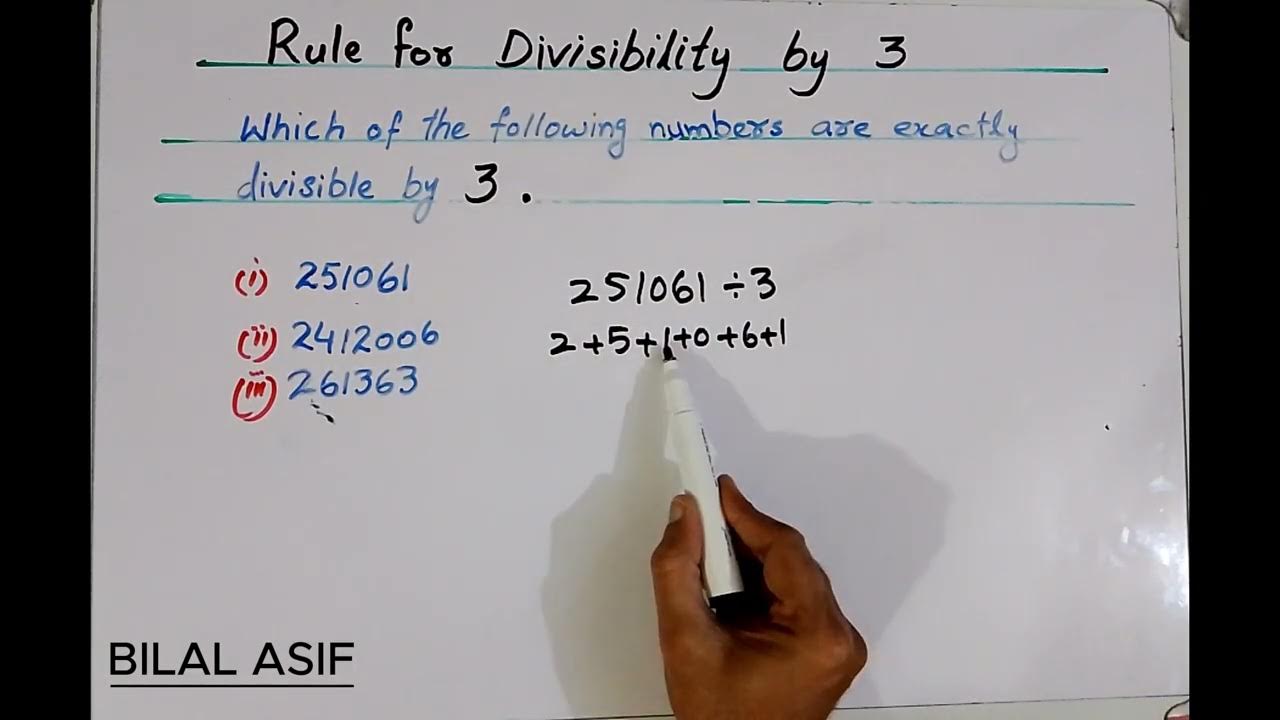 Rule for Divisibility by 3
Which of the following numbers are exactly
divisible by 3.
(i) 251061
(ii) 2412006
(iii) 261363
251061 ÷ 3
2+5+1+0+6+1
BILAL ASIF